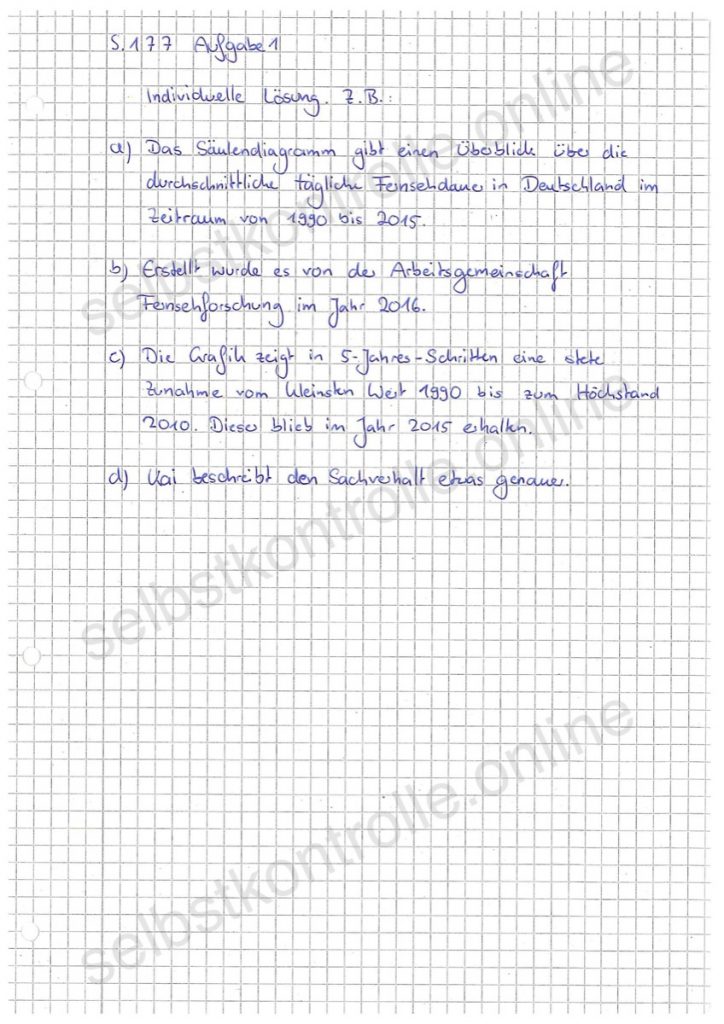 S. 177 Aufgabe 1
Individuelle Lösung. Z.B.:
a) Das Säulendiagramm gibt einen Überblick über die
durchschnittliche tägliche Fernsehdauer in Deutschland im
Zeitraum von 1990 bis 2015.
b) Erstellt wurde es von der Arbeitsgemeinschaft
Fernsehforschung im Jahr 2016.
c) Die Grafik zeigt in 5-Jahres-Schritten eine stete
Zunahme vom kleinsten Wert 1990 bis zum Höchstand
2010. Dieser blieb im Jahr 2015 erhalten.
d) Kai beschreibt den Sachverhalt etwas genauer.
selbstkontrolle.online
selbstkontrolle.online
selbstkontrolle.online